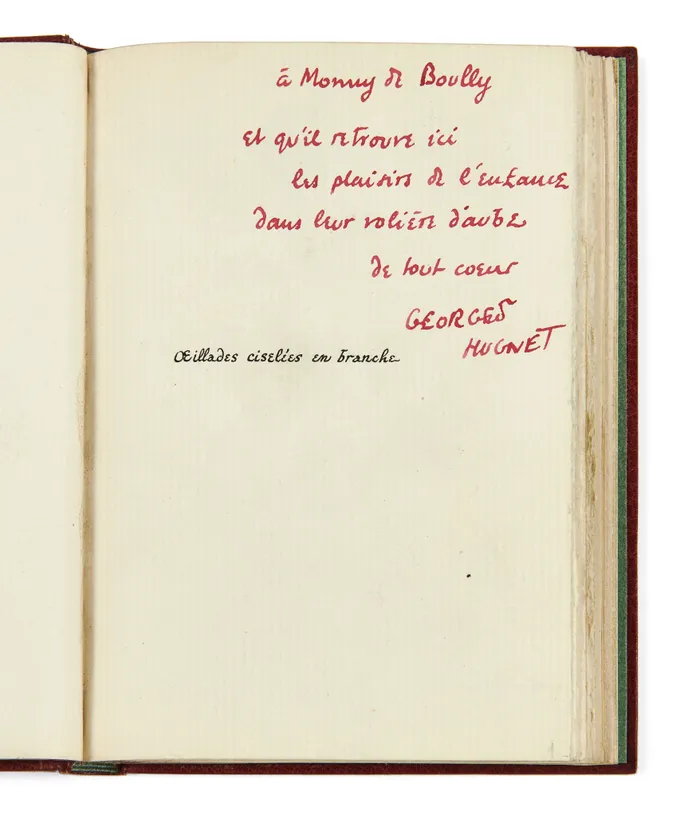 à Monny de Boully
et qu'il retrouve ici
les plaisirs de l'enfance
dans leur volière d'aube
de tout coeur
GEORGES
HUGNET
Œillades ciselées en branche
1